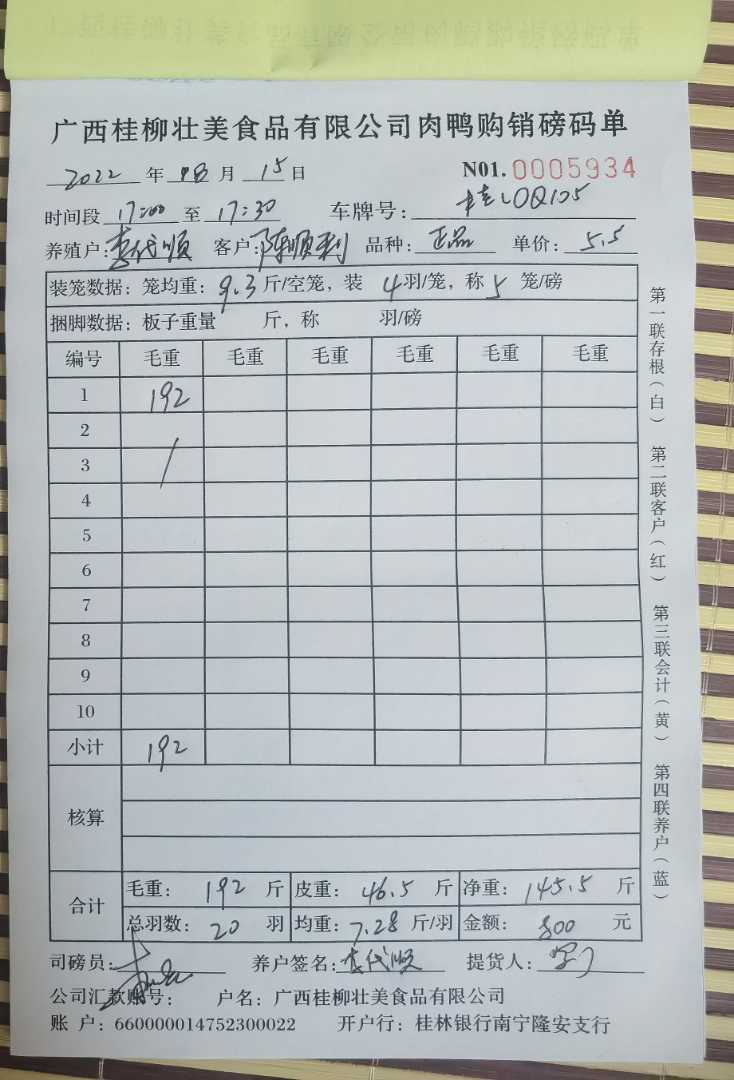 广西桂柳壮美食品有限公司肉鸭购销磅码单
2022年 月15日 N01.0005934
时间段17:00至17:30 车牌号:桂L0Q105
养殖户:李代顺 客户:陈顺利 品种:正品 单价:5.5
装笼数据:笼均重:9.3斤/空笼,装4羽/笼,称5笼/磅
捆脚数据:板子重量 斤,称 羽/磅
编号 毛重 毛重 毛重 毛重 毛重 毛重
1 192
2
3 /
4
5
6
7
8
9
10
小计 192
核算
合计 毛重:192斤 皮重:46.5斤 净重:145.5斤
总羽数:20羽 均重:7.28斤/羽 金额:800元
司磅员: 养户签名:李代顺 提货人:
公司汇款账号: 户名:广西桂柳壮美食品有限公司
账户:660000014752300022 开户行:桂林银行南宁隆安支行
第一联存根(白) 第二联客户(红) 第三联会计(黄) 第四联养户(蓝)